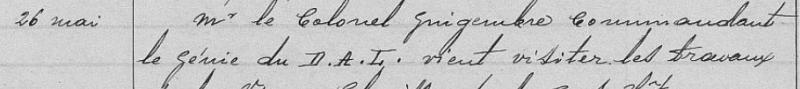 26 mai Mr le Colonel Guigembre Commandant
le Génie du D.A.L. vient visiter les travaux